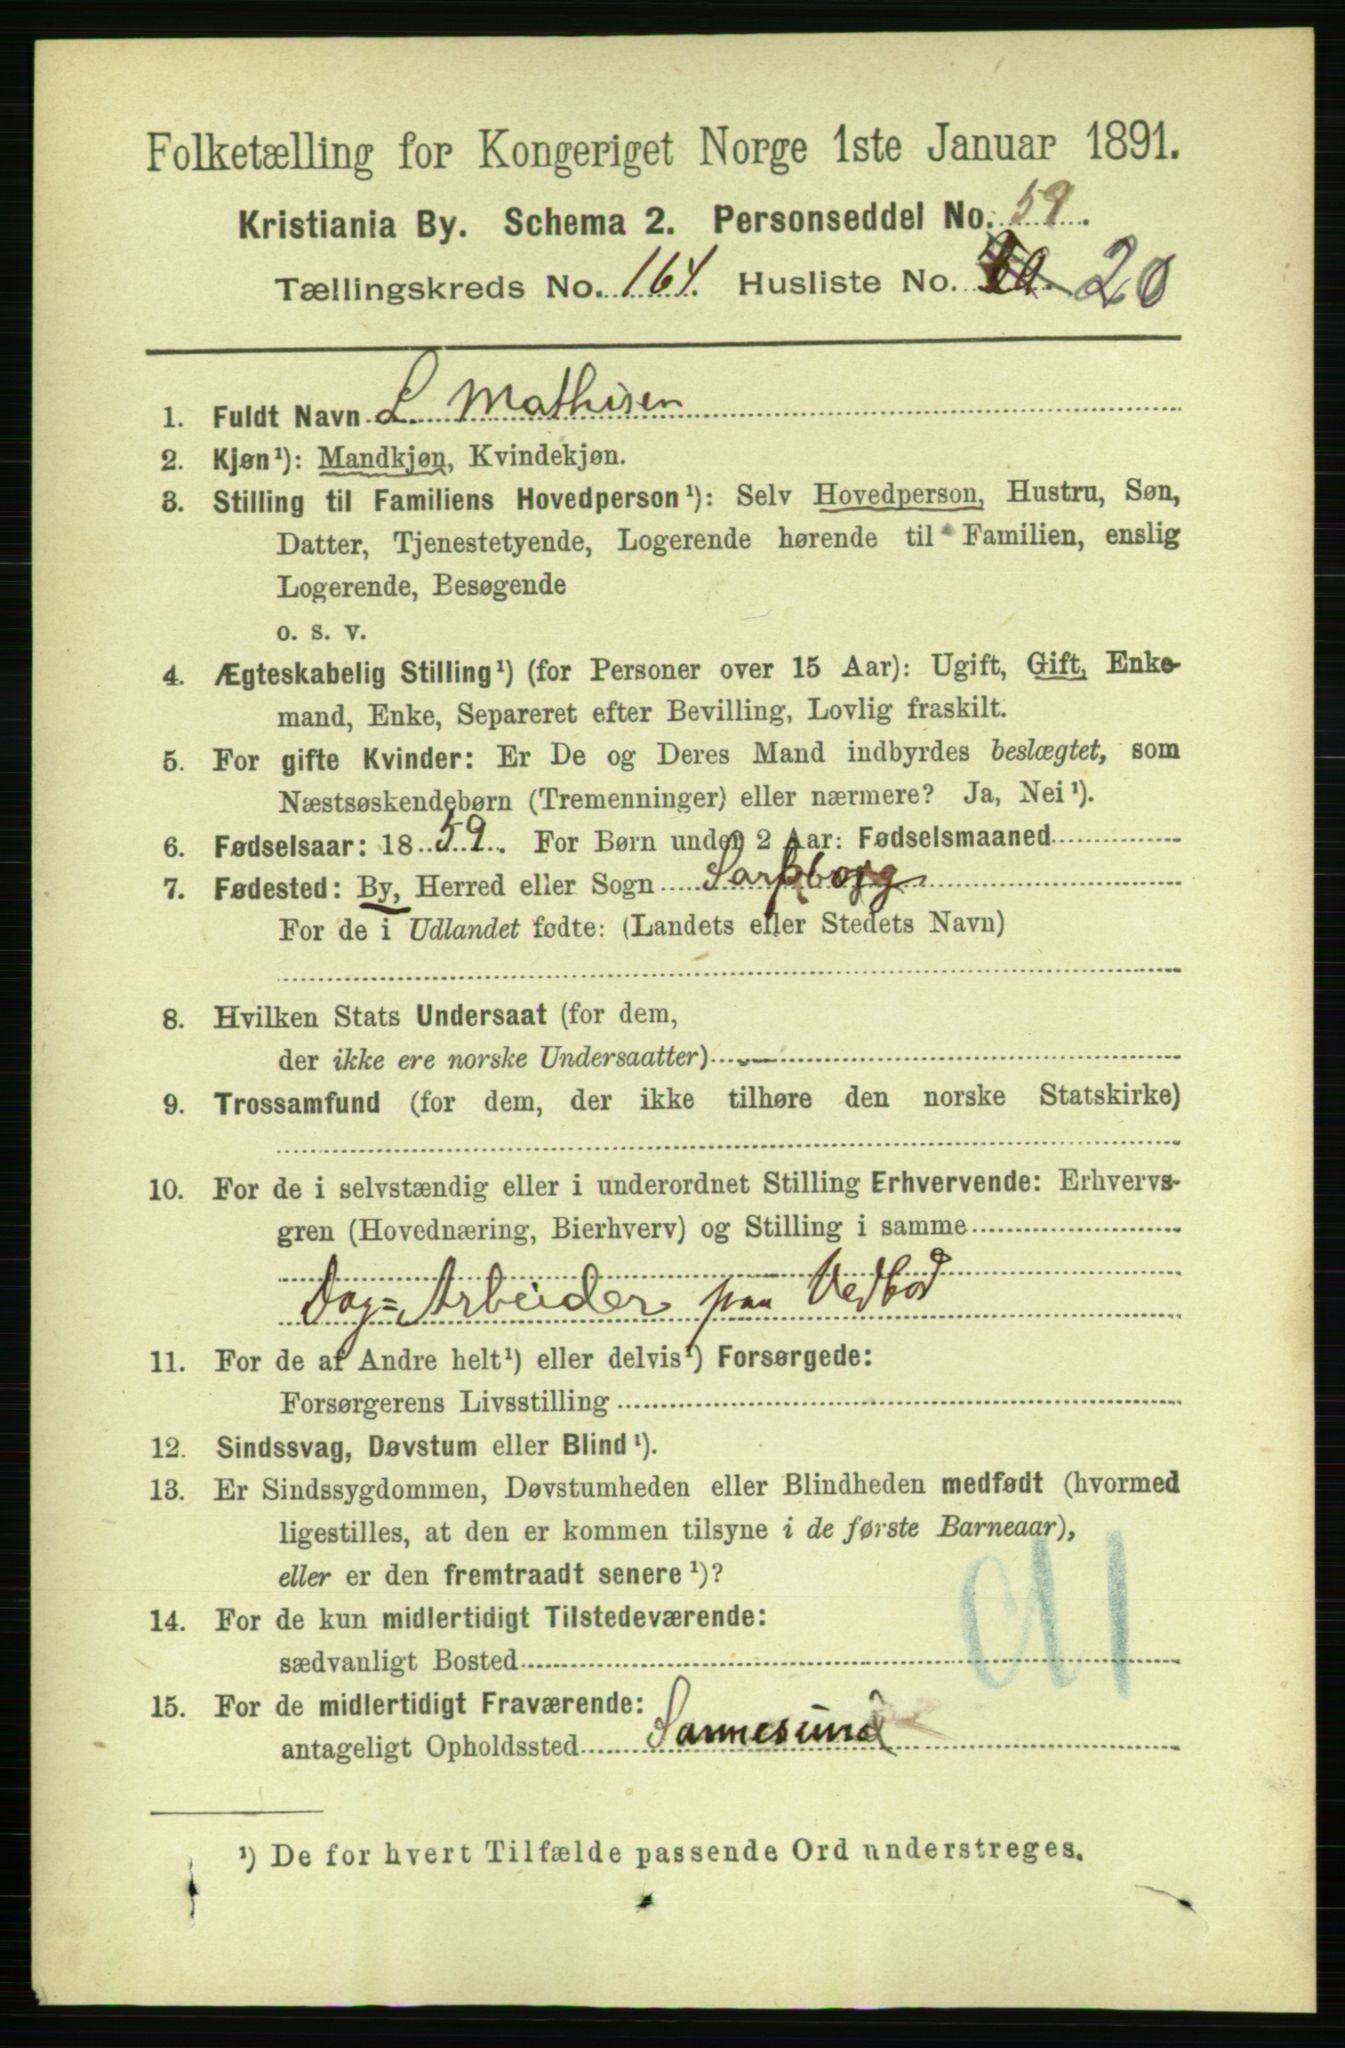 Folketælling for Kongeriget Norge 1ste Januar 1891.
Kristiania By. Schema 2. Personseddel No. 59.
Tællingskreds No. 164. Husliste No. 20
1. Fuldt Navn L. Mathisen
2. Kjøn¹): Mandkjøn, Kvindekjøn.
3. Stilling til Familiens Hovedperson¹): Selv Hovedperson, Hustru, Søn,
Datter, Tjenestetyende, Logerende hørende til Familien, enslig
Logerende, Besøgende
o. s. v.
4. Ægteskabelig Stilling¹) (for Personer over 15 Aar): Ugift, Gift, Enke-
mand, Enke, Separeret efter Bevilling, Lovlig fraskilt.
5. For gifte Kvinder: Er De og Deres Mand indbyrdes beslægtet, som
Næstsøskendebørn (Tremenninger) eller nærmere? Ja, Nei¹).
6. Fødselsaar: 1859. For Børn under 2 Aar: Fødselsmaaned
7. Fødested: By, Herred eller Sogn Sarpborg
For de i Udlandet fødte: (Landets eller Stedets Navn)
8. Hvilken Stats Undersaat (for dem,
der ikke ere norske Undersaatter)
9. Trossamfund (for dem, der ikke tilhøre den norske Statskirke)
10. For de i selvstændig eller i underordnet Stilling Erhvervende: Erhvervs-
gren (Hovednæring, Bierhverv) og Stilling i samme
Dag=Arbeider paa Vedbod
11. For de af Andre helt¹) eller delvis¹) Forsørgede:
Forsørgerens Livsstilling
12. Sindssvag, Døvstum eller Blind¹).
13. Er Sindssygdommen, Døvstumheden eller Blindheden medfødt (hvormed
ligestilles, at den er kommen tilsyne i de første Barneaar),
eller er den fremtraadt senere¹)?
14. For de kun midlertidigt Tilstedeværende:
sædvanligt Bosted
15. For de midlertidigt Fraværende:
antageligt Opholdssted Sannesund
¹) De for hvert Tilfælde passende Ord understreges.